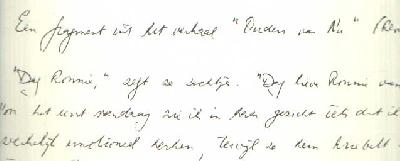 Een fragment uit het verhaal "Ouders van Nu"
"Dag Ronnie," zegt ze zachtjes. "Dag lieve Ronnie van
het eerst vandaag zie ik in haar gezicht iets dat ik
emotioneel herken, terwijl ze hem knuffelt